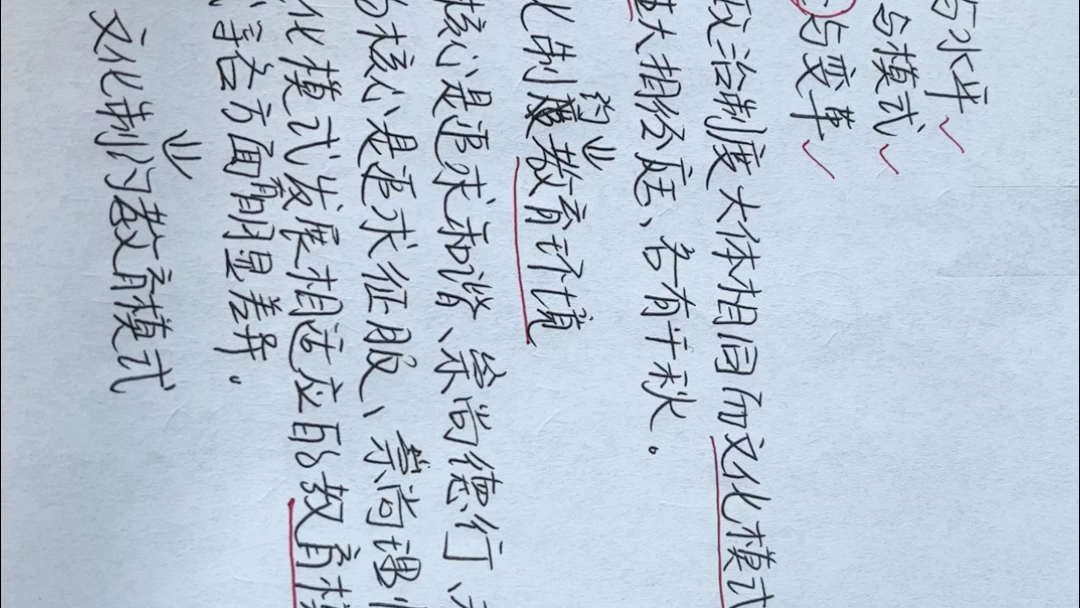 与水平
与模式
与变革
政治制度大体相同而文化模式
大相径庭、各有千秋。
化制约教育环境
核心是追求和谐、崇尚德行、
核心是追求征服、崇尚
化模式发展相适应的教育
各方面明显差异。
文化制约教育模式